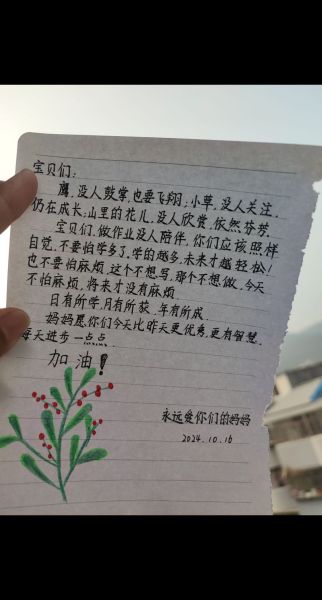 宝贝们:
鹰,没人鼓掌,也要飞翔;小草,没人关注,
仍在成长;山里的花儿,没人欣赏,依然芬芳。
宝贝们,做作业没人陪伴,你们应该照样
自觉,不要怕学多了,学的越多,未来才越轻松!
也不要怕麻烦,这个不想写,那个不想做,今天
不怕麻烦,将来才没有麻烦。
日有所学,月有所获,年有所成
妈妈愿你们今天比昨天更优秀,更有智慧,
每天进步一点点,
加油!
永远爱你们的妈妈
2024.10.16